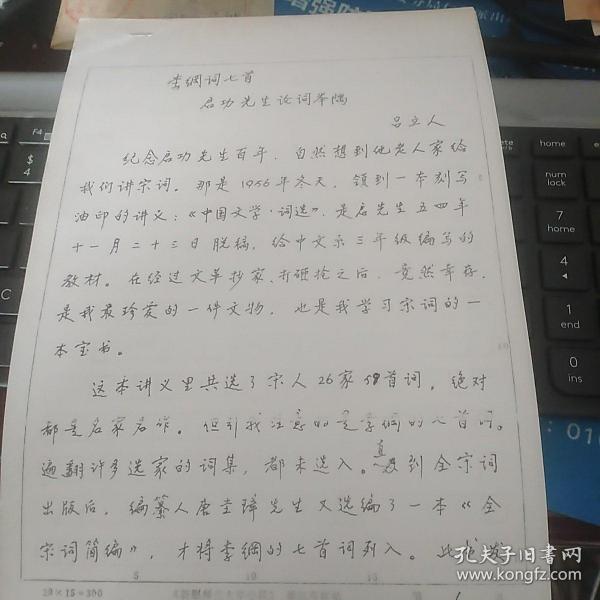 李纲词七首
启功先生论词举隅
吕立人
纪念启功先生百年，自然想到他老人家给
我们讲宋词。那是1956年冬天，领到一本刻写
油印的讲义：《中国文学·词选》，是启先生五四年
十一月二十三日脱稿，给中文系三年级编写的
教材。在经过文革抄家、打砸抢之后，竟然幸存，
是我最珍爱的一件文物，也是我学习宋词的一
本宝书。
这本讲义里共选了宋人26家 首词，绝对
都是名家名作。但引我注意的是李纲的七首词。
遍翻许多选家的词集，都未选入。直到全宋词
出版后，编纂人唐圭璋先生又选编了一本《全
宋词简编》，才将李纲的七首词列入。此
20×15=300
5
10
15
F4
$
4
home
num lock
7
home
4
1
end
0
ins
增强防
孔夫子旧书网
kongfz.com